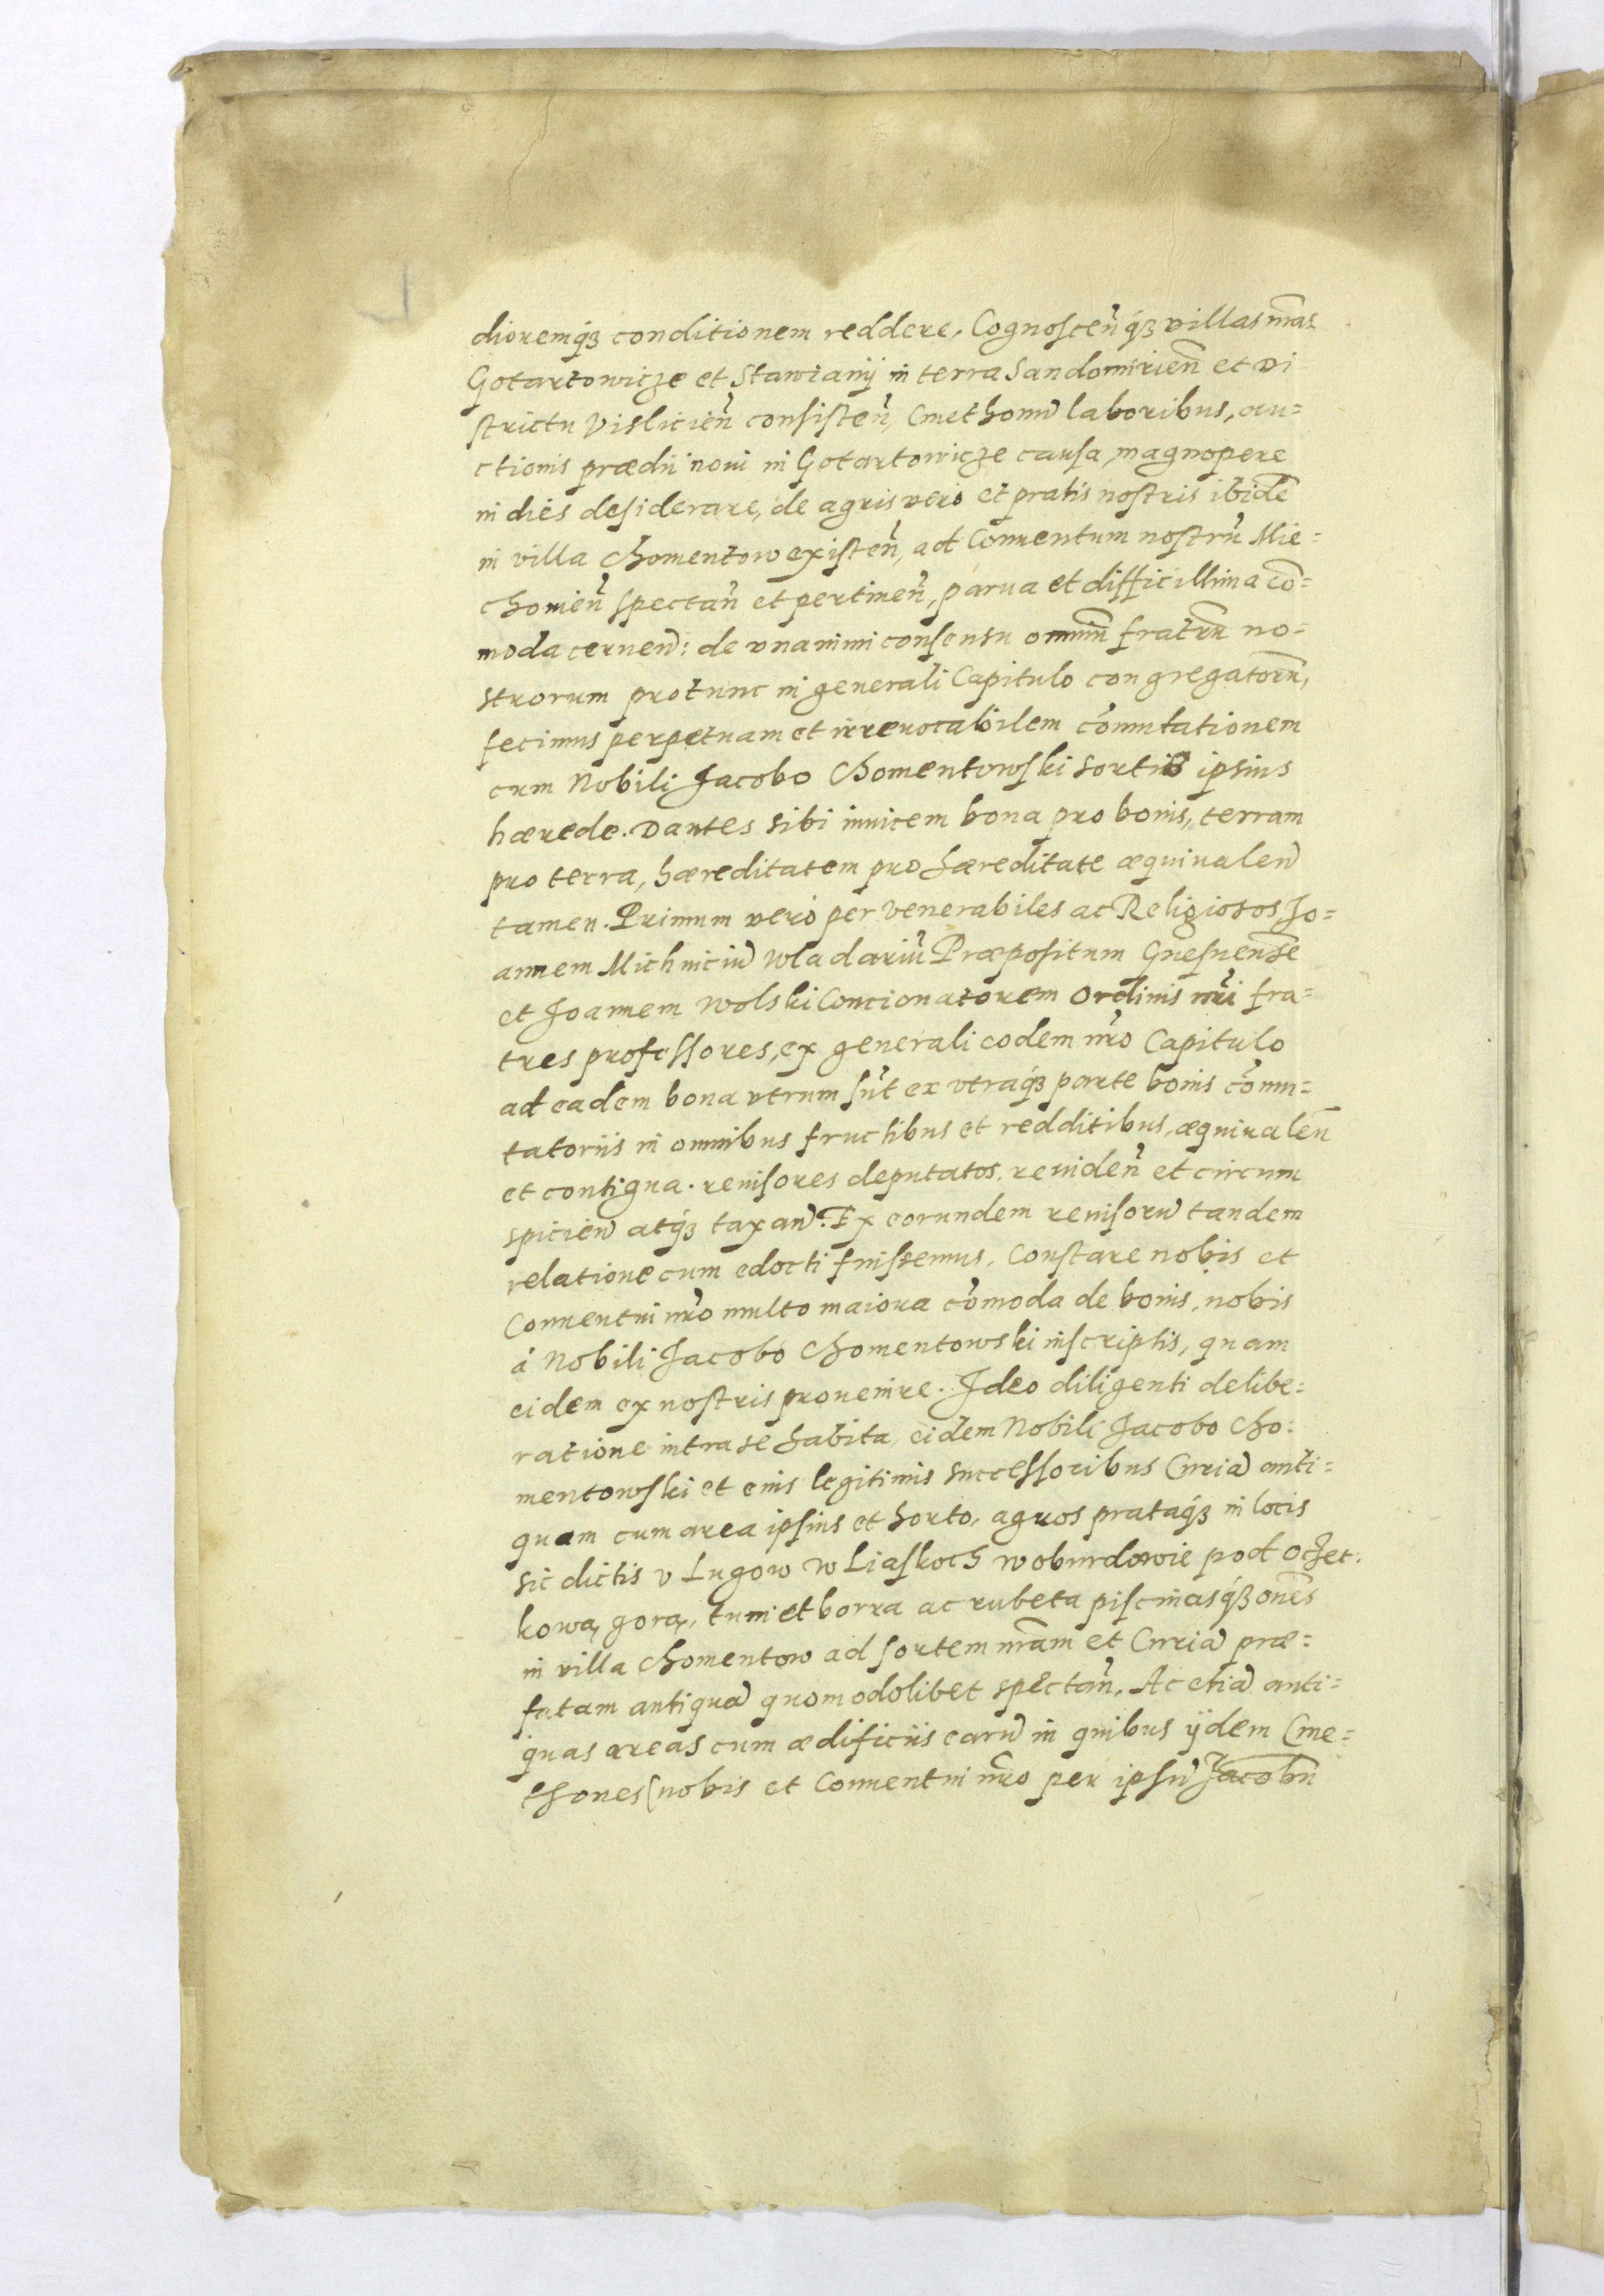 dioremq́ꝫ conditionem reddere, Cognoscen̄q́ꝫ villas n̄ras
Gotartowicze et Stawiany in terra Sandomirien̄ et Di
strictu Vislicien̄ consisten̄, Cmethonū laboribus, au=
ctionis prædii noui in Gotartowicze causa, magnopere
in dies desiderare, de agris verò et pratis nostris ibidē
in villa Chomentow existen̄, ad Conuentum nostrū Mie=
chouien̄ spectan̄ et pertinen̄, parua et difficillima cō=
moda cernen̄: de vnanimi consensu omniū fratrū no=
strorum protunc in generali Capitulo congregatorū,
fecimus perpetuam et irreuocabilem cōmutationem
cum Nobili Jacobo Chomentowski sortis ipsius
hærede. Dantes sibi inuicem bona pro bonis, terram
pro terra, hæreditatem pro hæreditate æquiualen̄
tamen. Primum verò per Venerabiles ac Religiosos Jo=
annem Michniciū Wladariū Præpositum Gnesnensē
et Joannem Wolski Concionatorem Ordinis n̄ri fra=
tres professores, ex generali eodem n̄ro Capitulo
ad eadem bona vtrum sūt ex vtraq́ꝫ parte bonis cōmu=
tatoriis in omnibus fructibus et redditibus, æquiualen̄
et contigua. reuisores deputatos, reuiden̄ et circum
spicien̄ atq́ꝫ taxan̄. Ex eorundem reuisorū tandem
relatione cum edocti fuissemus, Constare nobis et
Conuentui n̄ro multo maiora cōmoda de bonis, nobis
á Nobili Jacobo Chomentowski inscriptis, quam
eidem ex nostris prouenire. Ideo diligenti delibe=
ratione intra se habita, eidem Nobili Jacobo Cho=
mentowski et eius legitimis successoribus Curiā anti=
quam cum area ipsius et horto, agros prataq́ꝫ in locis
sic dictis v Lugow w Liaskoch w oburdowie pod Oczet=
kową gorą, tum et borra ac rubeta piscinasq́ꝫ om̄es
in villa Chomentow ad sortem n̄ram et Curiā præ=
fatam antiquā quomodolibet spectan̄. Ac etiā anti=
quas areas cum ædificiis earū in quibus ijdem Cme=
thones (nobis et Conuentui n̄ro per ipsū Jacobū